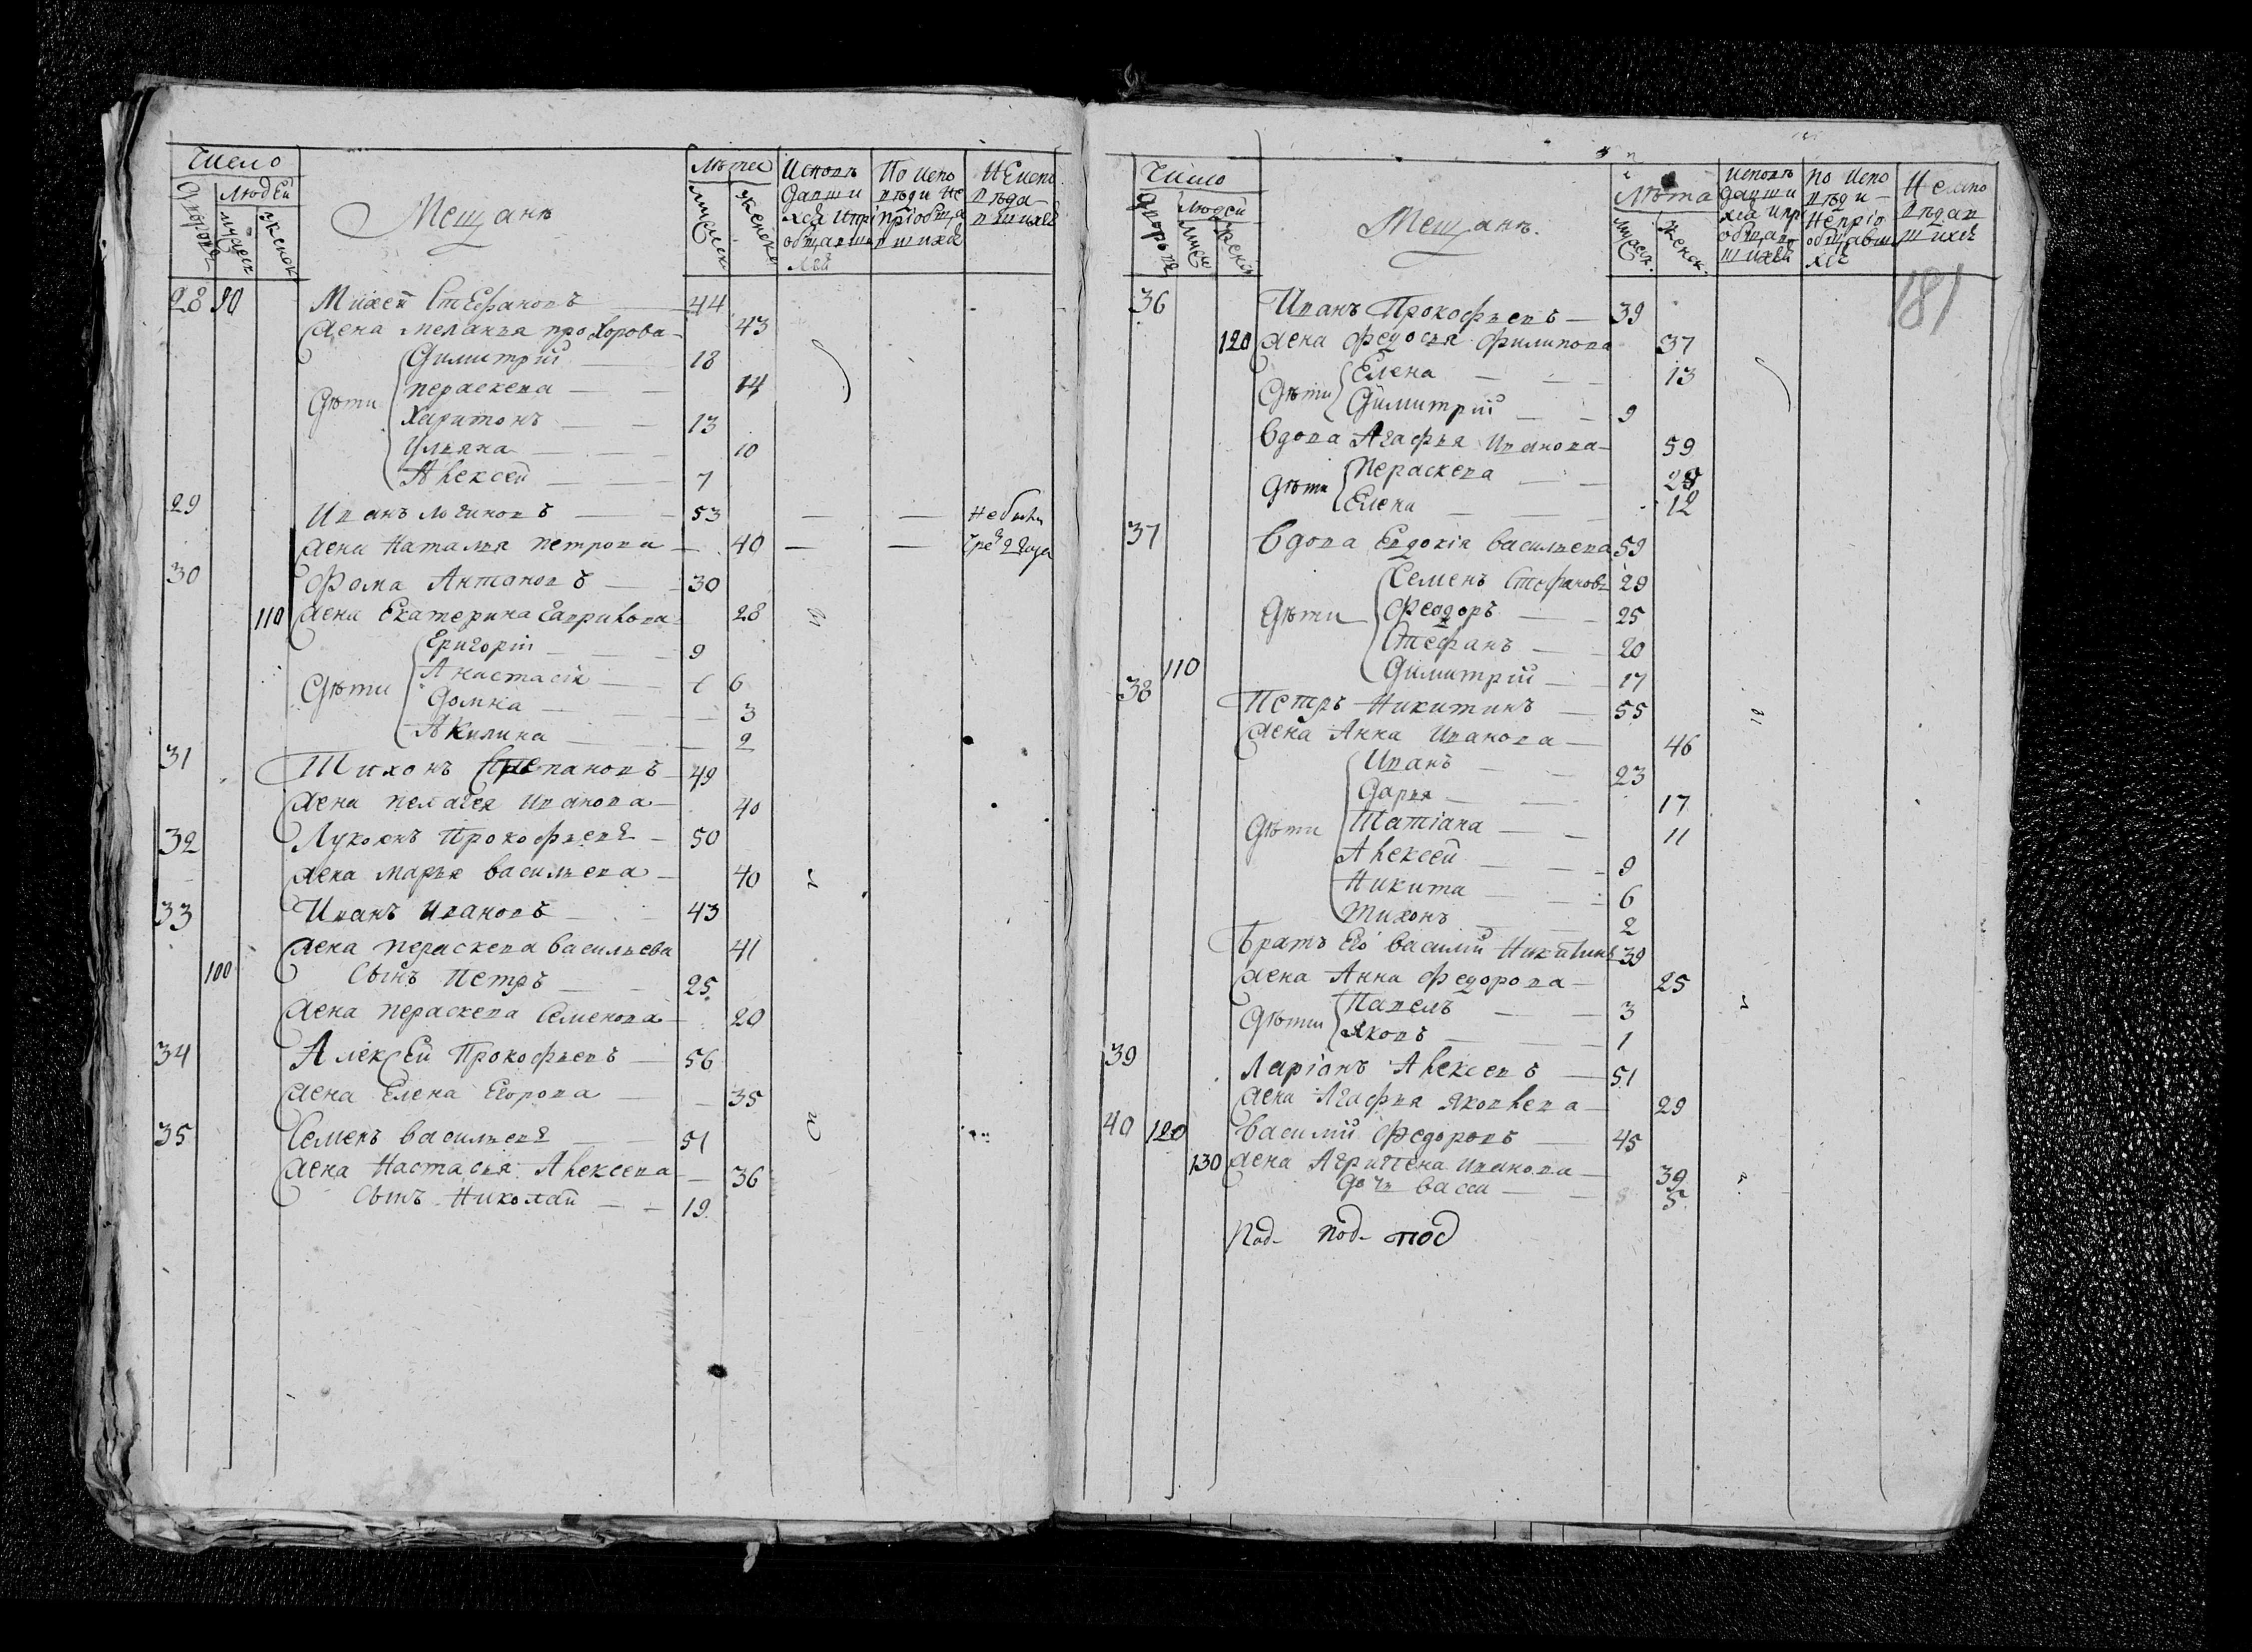 Число
Дворовъ
Людей
мужес
женск
Мещанъ
Лѣта
мужеск
женск
Исповѣ
давши
хся и прі
общавши
хся
По испо
вѣди не
пріобща
вшихся
Не испо
вѣда
вшихся
28 90 Михей Стефановъ 44
жена Меланья Прохорова 43
Дѣти
Димитрій 18
Пераскева 14
Харитонъ 13
Ульяна 10
Алексей 7
29 Иванъ Логиновъ 53
жена Наталья Петрова 40
30 Фома Антановъ 30
110 жена Екатерина Гаврилова 28
Дѣти
Григорій 9
Анастасія 6
Домна 3
Акилина 2
31 Тихонъ Степановъ 49
жена Пелагея Иванова 40
32 Лукоянъ Прокофьевъ 50
жена Марья Васильева 40
33 Иванъ Ивановъ 43
жена Пераскева Васильева 41
100 Сынъ Петръ 25
жена Пераскева Семенова 20
34 Алексей Прокофьевъ 56
жена Елена Егорова 35
35 Семенъ Васильевъ 51
жена Настасья Алексева 36
Сынъ Николай 19
Число
Дворовъ
Людей
мужес
женск
Мещанъ.
Лѣта
мужеск.
женск.
Исповѣ
давши
хся и прі
общав
шихся
По испо
вѣди
непріо
общавши
хся
Не испо
вѣдав
шихся
181
36 Иванъ Прокофьевъ 39
120 жена Федосья Филипова 37
Дѣти
Елена 13
Димитрій 9
Вдова Агафья Иванова 59
Дѣти
Пераскева
Елена 12
37 Вдова Евдокія Васильева 59
Дѣти
Семенъ Стефановъ 29
Феодоръ 25
Стефанъ 20
110 Димитрій 17
38 Петръ Никитинъ 55
жена Анна Иванова 46
Дѣти
Иванъ 23
Дарья 17
Татіана 11
Алексей 9
Никита 6
Тихонъ 2
Братъ его Василій Никитинъ 39
жена Анна Федорова 25
Дѣти
Павелъ 3
Яковъ 1
39 Ларіонъ Алексевъ 51
жена Агафья Яковлева 29
40 120 Василій Федоровъ 45
130 жена Агрипена Иванова 39
Дочь Васса 5
Под- под- под